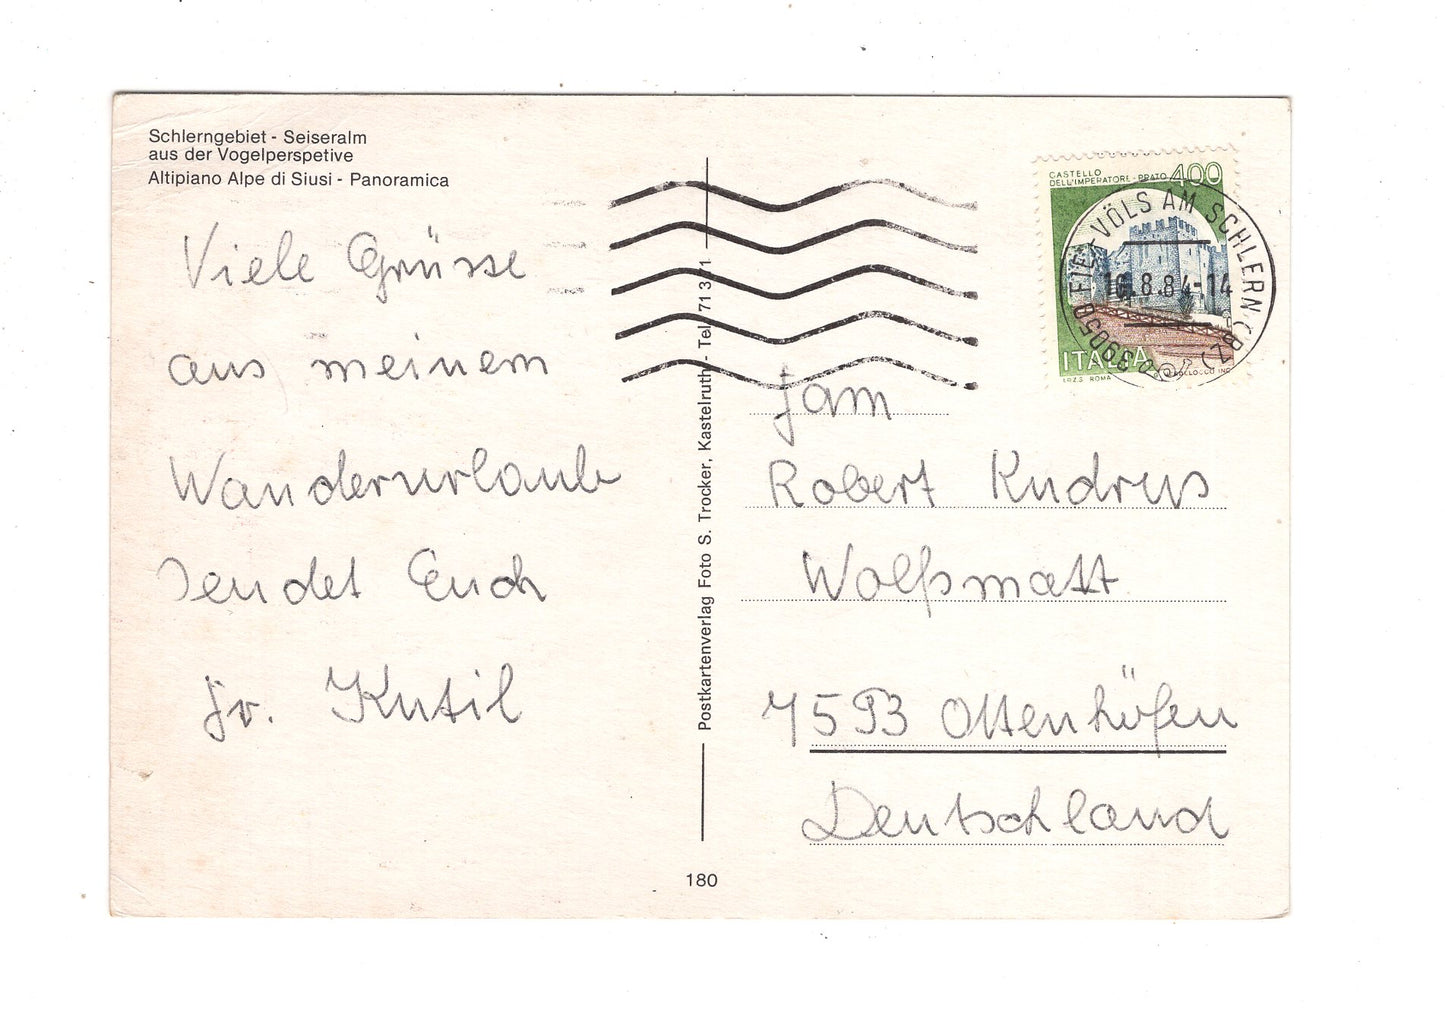 Schlerngebiet - Seiseralm
aus der Vogelperspetive
Altipiano Alpe di Siusi - Panoramica
Viele Grüsse
aus meinem
Wanderurlaub
sendet Euch
Fr. Kutil
Postkartenverlag Foto S. Trocker, Kastelruth - Tel. 71 3 71
180
CASTELLO
DELL'IMPERATORE - PRATO 400
ITALIA
I.P.Z.S. ROMA
39050 FIE'-VÖLS AM SCHLERN (BZ)
16.8.84-14
Fam
Robert
Wolfsmatt
7593 Ottenhöfen
Deutschland